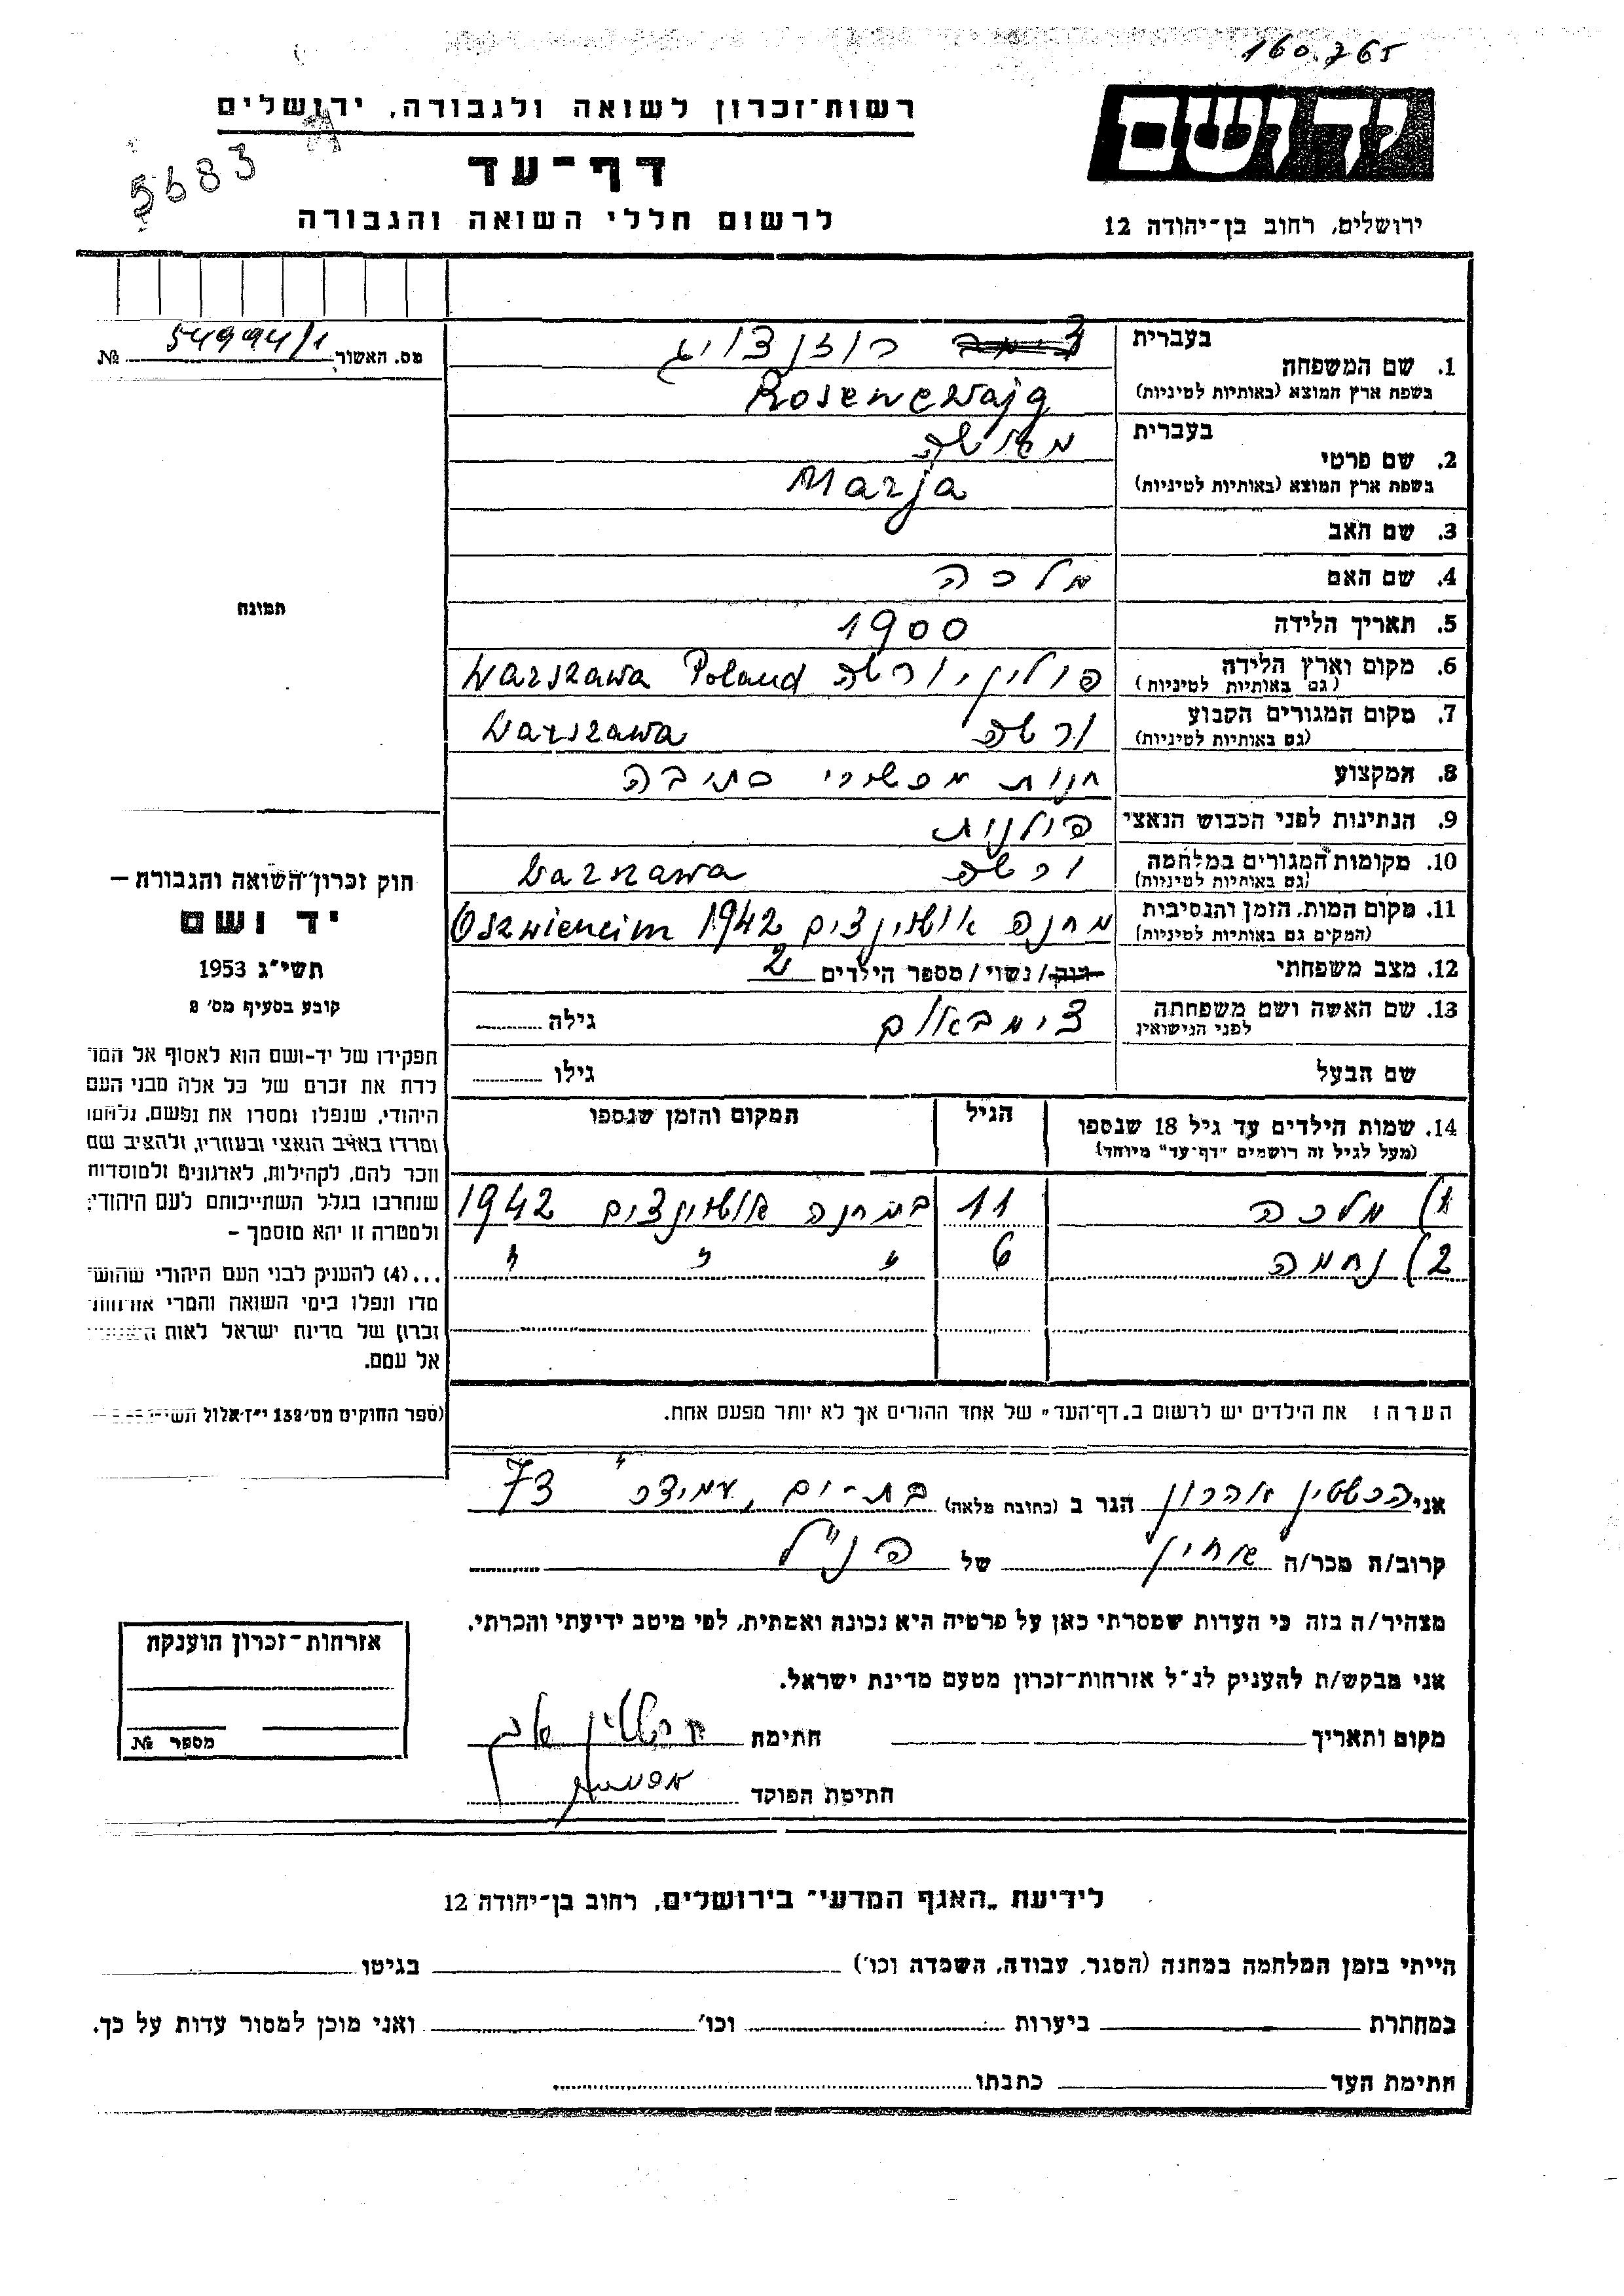 160.765
רשות־זכרון לשואה ולגבורה, ירושלים
יד ושם
5683
דף־עד
לרשום חללי השואה והגבורה
ירושלים, רחוב בן־יהודה 12
מס. האשור 54994/1 №
1. שם המשפחה
בעברית רוזנצויג
בשפת ארץ המוצא (באותיות לטיניות) Rosenewajg
2. שם פרטי
בעברית
בשפת ארץ המוצא (באותיות לטיניות) Marja
3. שם האב
4. שם האם מלכה
5. תאריך הלידה 1900
6. מקום וארץ הלידה פולין, ורשה Warszawa Poland
(גם באותיות לטיניות)
7. מקום המגורים הקבוע ורשה Warszawa
(גם באותיות לטיניות)
8. המקצוע חנות מכשירי כתיבה
9. הנתינות לפני הכבוש הנאצי פולנית
10. מקומות המגורים במלחמה ורשה Warszawa
(גם באותיות לטיניות)
11. מקום המות, הזמן והנסיבות מחנה אושוינצים 1942 Oszwiencim
(המקום גם באותיות לטיניות)
12. מצב משפחתי רוק/נשוי/מספר הילדים 2
13. שם האשה ושם משפחתה צימבאלום גילה
לפני הנישואין
שם הבעל גילו
14. שמות הילדים עד גיל 18 שנספו הגיל המקום והזמן שנספו
(מעל לגיל זה רושמים "דף־עד" מיוחד)
1) מלכה 11 במחנה אושוינצים 1942
2) נחמה 6 " " "
הערה: את הילדים יש לרשום ב„דף־העד" של אחד ההורים אך לא יותר מפעם אחת.
תמונה
חוק זכרון השואה והגבורה –
יד ושם
תשי"ג 1953
קובע בסעיף מס׳ 2
תפקידו של יד-ושם הוא לאסוף אל המו
לדת את זכרם של כל אלה מבני העם
היהודי, שנפלו ומסרו את נפשם, נלחמו
ומרדו באויב הנאצי ובעוזריו, ולהציב שם
וזכר להם, לקהילות, לארגונים ולמוסדות
שנחרבו בגלל השתייכותם לעם היהודי;
ולמטרה זו יהא מוסמך –
...(4) להעניק לבני העם היהודי שהוש
מדו ונפלו בימי השואה והמרי אזרחות
זכרון של מדינת ישראל לאות
אל עמם.
(ספר החוקים מס׳ 132 י"ז אלול
אני הכשטין אהרון הגר ב (כתובת מלאה) בת-ים, עמידר 73
קרוב/ה מכר/ה אחין של הנ"ל
מצהיר/ה בזה כי העדות שמסרתי כאן על פרטיה היא נכונה ואמתית, לפי מיטב ידיעתי והכרתי.
אני מבקש/ת להעניק לנ"ל אזרחות־זכרון מטעם מדינת ישראל.
מקום ותאריך חתימת
חתימת הפוקד
אזרחות־זכרון הוענקה
מספר №
לידיעת „האגף המדעי" בירושלים, רחוב בן־יהודה 12
הייתי בזמן המלחמה במחנה (הסגר, עבודה, השמדה וכו׳) בגיטו
במחתרת ביערות וכו׳ ואני מוכן למסור עדות על כך.
חתימת העד כתבתו